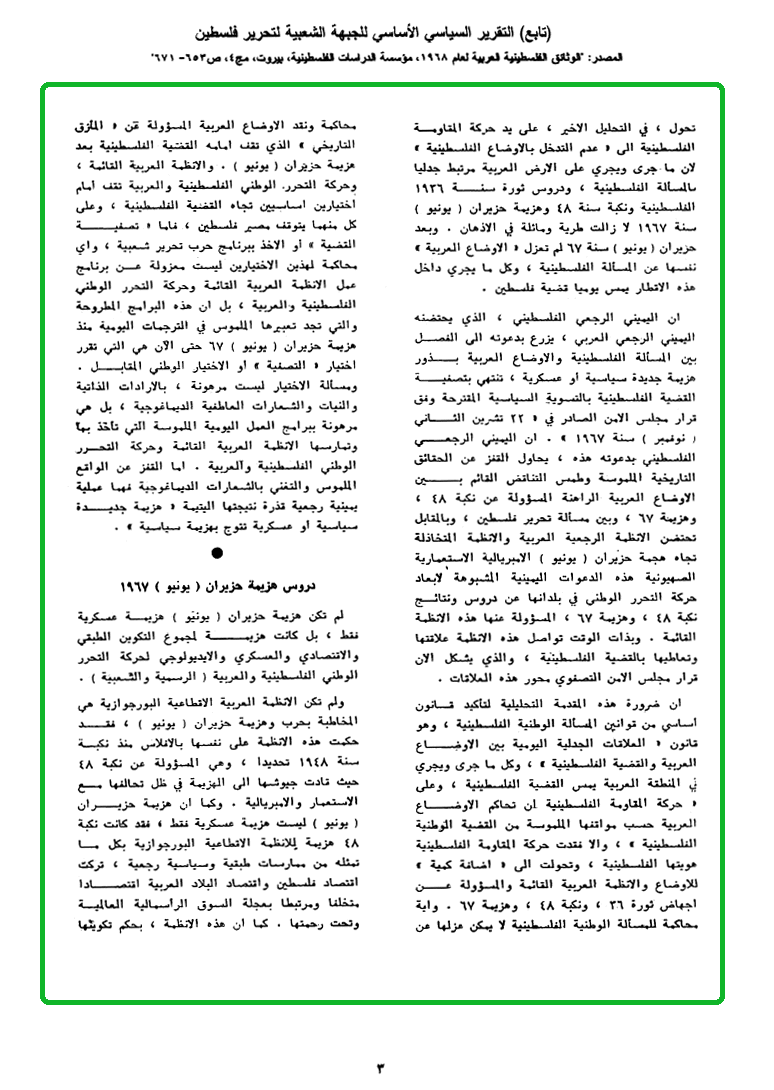 (تابع) التقرير السياسي الأساسي للجبهة الشعبية لتحرير فلسطين
المصدر: "الوثائق الفلسطينية العربية لعام ١٩٦٨، مؤسسة الدراسات الفلسطينية، بيروت، مج٤، ص٦٥٣- ٦٧١"
تحول ، في التحليل الاخير ، على يد حركة المقاومة
الفلسطينية الى « عدم التدخل بالاوضاع الفلسطينية »
لان ما جرى ويجري على الارض العربية مرتبط جدليا
بالمسألة الفلسطينية ، ودروس ثورة سنة ١٩٣٦
الفلسطينية ونكبة سنة ٤٨ وهزيمة حزيران ( يونيو )
سنة ١٩٦٧ لا زالت طرية وماثلة في الاذهان . وبعد
حزيران ( يونيو ) سنة ٦٧ لم تعزل « الاوضاع العربية »
نفسها عن المسألة الفلسطينية ، وكل ما يجري داخل
هذه الاقطار يمس يوميا قضية فلسطين .
ان اليميني الرجعي الفلسطيني ، الذي يحتضنه
اليميني الرجعي العربي ، يزرع بدعوته الى الفصل
بين المسألة الفلسطينية والاوضاع العربية بذور
هزيمة جديدة سياسية أو عسكرية ، تنتهي بتصفية
القضية الفلسطينية بالتسوية السياسية المقترحة وفق
قرار مجلس الامن الصادر في « ٢٢ تشرين الثاني
( نوفمبر ) سنة ١٩٦٧ » . ان اليميني الرجعي
الفلسطيني بدعوته هذه ، يحاول القفز عن الحقائق
التاريخية الملموسة وطمس التناقض القائم بين
الاوضاع العربية الراهنة المسؤولة عن نكبة ٤٨ ،
وهزيمة ٦٧ ، وبين مسألة تحرير فلسطين ، وبالمقابل
تحتضن الانظمة الرجعية العربية والانظمة المتخاذلة
تجاه هجمة حزيران ( يونيو ) الامبريالية الاستعمارية
الصهيونية هذه الدعوات اليمينية المشبوهة لابعاد
حركة التحرر الوطني في بلدانها عن دروس ونتائج
نكبة ٤٨ ، وهزيمة ٦٧ ، المسؤولة عنها هذه الانظمة
القائمة . وبذات الوقت تواصل هذه الانظمة علاقتها
وتعاطيها بالقضية الفلسطينية ، والذي يشكل الان
قرار مجلس الامن التصفوي محور هذه العلاقات .
ان ضرورة هذه المقدمة التحليلية لتأكيد قانون
اساسي من قوانين المسألة الوطنية الفلسطينية ، وهو
قانون « العلاقات الجدلية اليومية بين الاوضاع
العربية والقضية الفلسطينية » ، وكل ما جرى ويجري
في المنطقة العربية يمس القضية الفلسطينية ، وعلى
« حركة المقاومة الفلسطينية ان تحاكم الاوضاع
العربية حسب مواقفها الملموسة من القضية الوطنية
الفلسطينية » ، والا فقدت حركة المقاومة الفلسطينية
هويتها الفلسطينية ، وتحولت الى « اضافة كمية »
للاوضاع والانظمة العربية القائمة والمسؤولة عن
اجهاض ثورة ٣٦ ، ونكبة ٤٨ ، وهزيمة ٦٧ . واية
محاكمة للمسألة الوطنية الفلسطينية لا يمكن عزلها عن
محاكمة ونقد الاوضاع العربية المسؤولة عن « المأزق
التاريخي » الذي تقف امامه القضية الفلسطينية بعد
هزيمة حزيران ( يونيو ) . والانظمة العربية القائمة ،
وحركة التحرر الوطني الفلسطينية والعربية تقف أمام
اختيارين اساسيين تجاه القضية الفلسطينية ، وعلى
كل منهما يتوقف مصير فلسطين ، فاما « تصفية
القضية » أو الاخذ ببرنامج حرب تحرير شعبية ، واي
محاكمة لهذين الاختيارين ليست معزولة عن برنامج
عمل الانظمة العربية القائمة وحركة التحرر الوطني
الفلسطينية والعربية ، بل ان هذه البرامج المطروحة
والتي تجد تعبيرها الملموس في الترجمات اليومية منذ
هزيمة حزيران ( يونيو ) ٦٧ حتى الآن هي التي تقرر
اختيار « التصفية » أو الاختيار الوطني المقابل .
ومسألة الاختيار ليست مرهونة ، بالارادات الذاتية
والنيات والشعارات العاطفية الديماغوجية ، بل هي
مرهونة ببرامج العمل اليومية الملموسة التي تأخذ بها
وتمارسها الانظمة العربية القائمة وحركة التحرر
الوطني الفلسطينية والعربية . اما القفز عن الواقع
الملموس والتغني بالشعارات الديماغوجية فهما عملية
يمينية رجعية قذرة نتيجتها اليتيمة « هزيمة جديدة
سياسية او عسكرية تتوج بهزيمة سياسية » .
●
دروس هزيمة حزيران ( يونيو ) ١٩٦٧
لم تكن هزيمة حزيران ( يونيو ) هزيمة عسكرية
فقط ، بل كانت هزيمة لمجموع التكوين الطبقي
والاقتصادي والعسكري والايديولوجي لحركة التحرر
الوطني الفلسطينية والعربية ( الرسمية والشعبية ) .
ولم تكن الانظمة العربية الاقطاعية البورجوازية هي
المخاطبة بحرب وهزيمة حزيران ( يونيو ) ، فقد
حكمت هذه الانظمة على نفسها بالافلاس منذ نكبة
سنة ١٩٤٨ تحديدا ، وهي المسؤولة عن نكبة ٤٨
حيث قادت جيوشها الى الهزيمة في ظل تحالفها مع
الاستعمار والامبريالية . وكما ان هزيمة حزيران
( يونيو ) ليست هزيمة عسكرية فقط ، فقد كانت نكبة
٤٨ هزيمة للانظمة الاقطاعية البورجوازية بكل ما
تمثله من ممارسات طبقية وسياسية رجعية ، تركت
اقتصاد فلسطين واقتصاد البلاد العربية اقتصادا
متخلفا ومرتبطا بعجلة السوق الرأسمالية العالمية
وتحت رحمتها . كما ان هذه الانظمة ، بحكم تكوينها
٣